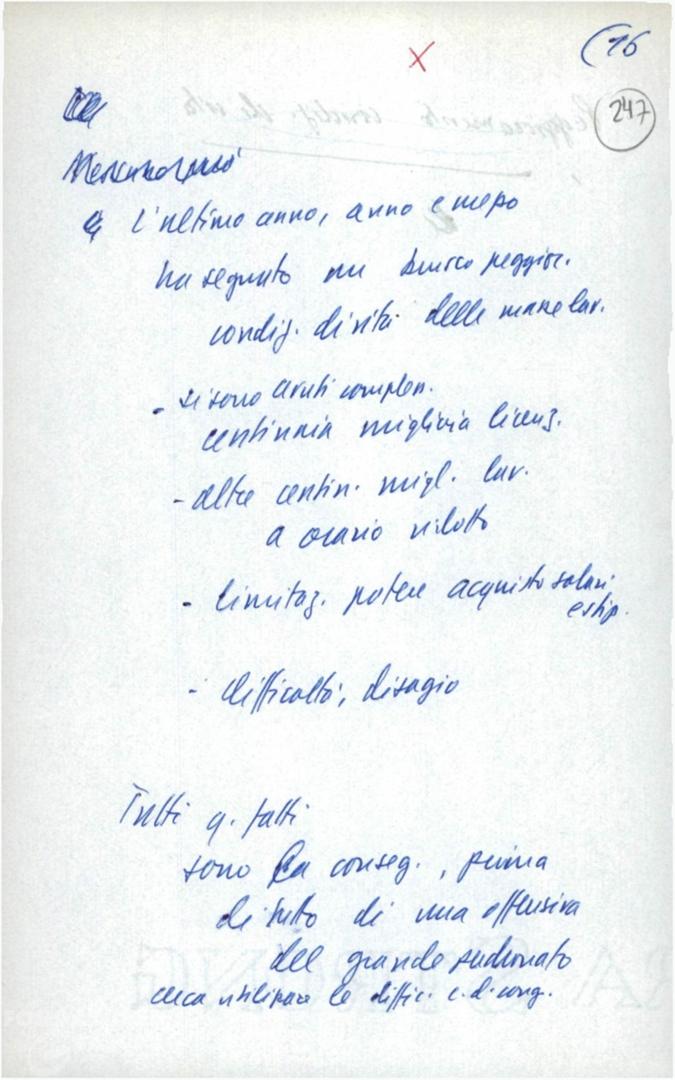 (16
247
L'ultimo anno, anno e mezzo
ha segnato un brusco peggior.
condiz. di vita delle masse lav.
- si sono avuti complen.
centinaia migliaia licenz.
- altre centin. migl. lav.
a orario ridotto
- limitaz. potere acquisto salari
e stip.
- difficoltà, disagio
Tutti q. fatti
sono la conseg., prima
di tutto di una offensiva
del grande padronato
cerca utilizzare le diffic. c.d. cong.